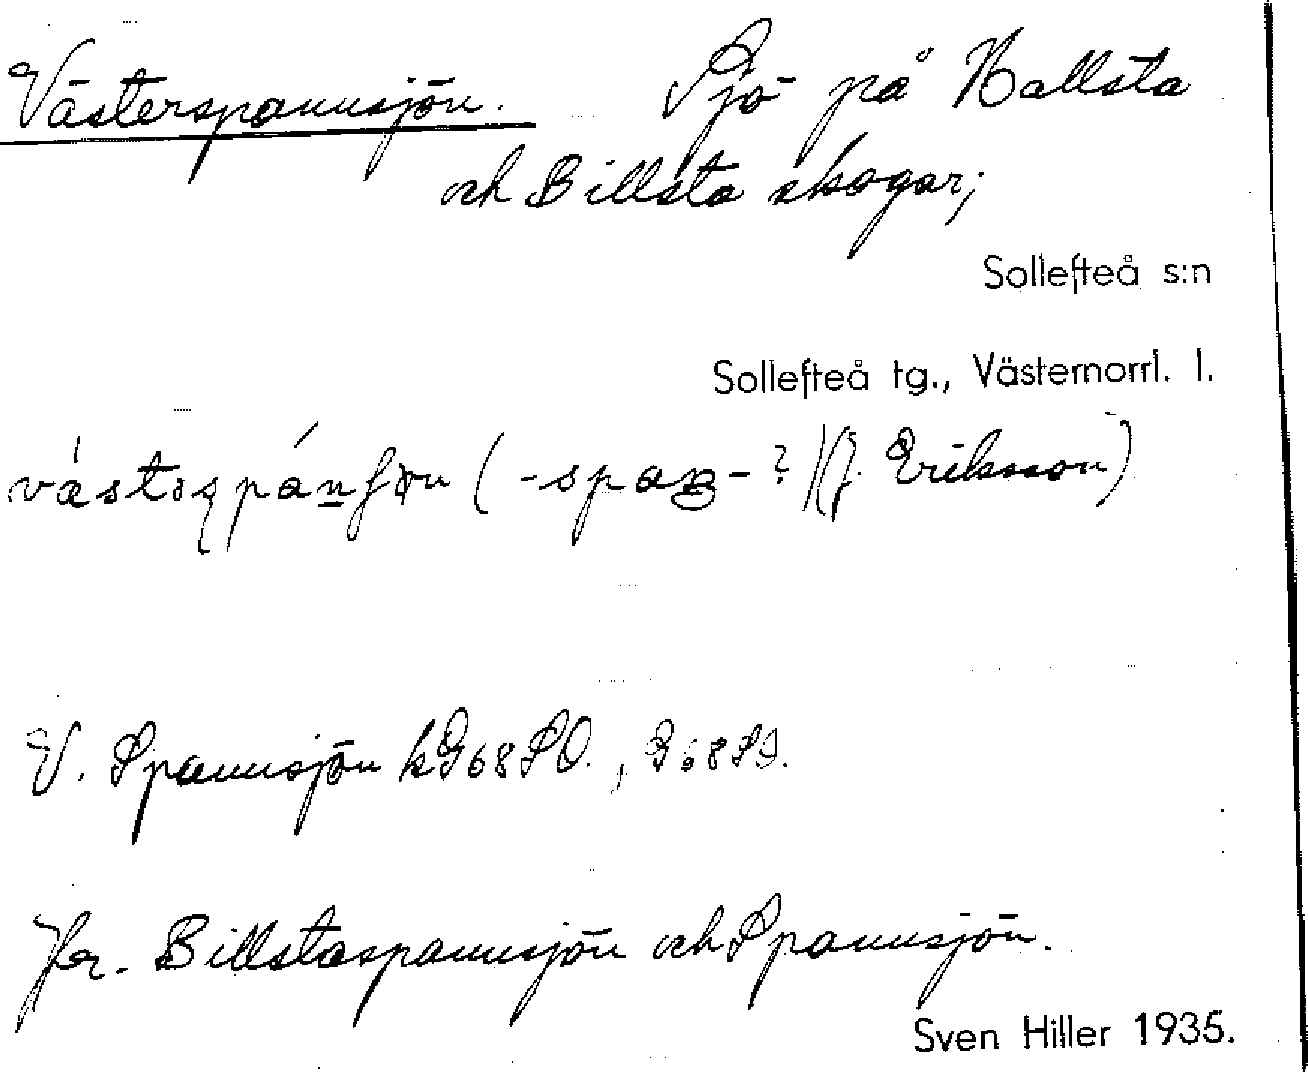 Västerspannsjön. Sjö på Hallsta
och Billsta skogar;
Sollefteå s:n
Sollefteå tg., Västernorrl. l.
(J. Eriksson)
V. Spannsjön kG68SO., G68SO.
Jfr. Billstaspannsjön och Spannsjön.
Sven Hiller 1935.